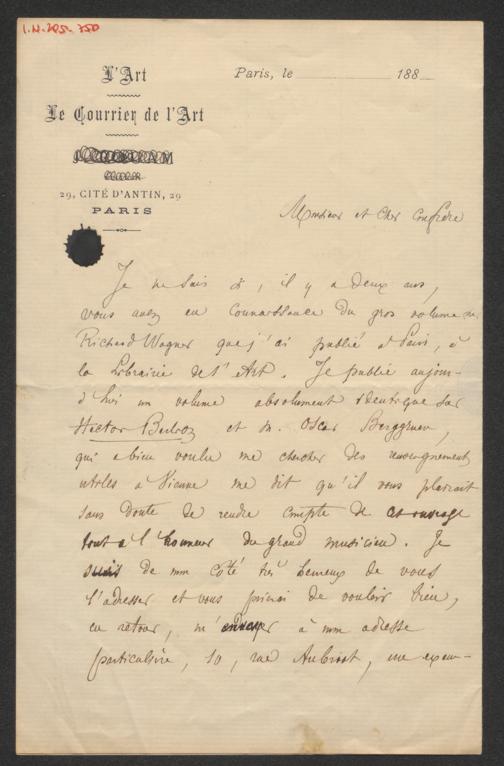 I.N. 205.750
L'Art
Paris, le 188
Le Courrier de l'Art
29, CITÉ D'ANTIN, 29
PARIS
Monsieur et cher Confrère
Je ne sais si, il y a deux ans,
vous avez eu connaissance du gros volume sur
Richard Wagner que j'ai publié à Paris, à
la Librairie de l'Art. Je publie aujour-
d'hui un volume absolument identique sur
Hector Berlioz et M. Oscar Berggruen,
qui a bien voulu me chercher des renseignements
utiles à Vienne me dit qu'il vous plairait
sans doute de rendre compte de cet ouvrage
tout à l'honneur du grand musicien. Je
suis de mon côté très heureux de vous
l'adresser et vous prierai de vouloir bien,
en retour, m'envoyer à mon adresse
particulière, 10, rue Aubriot, un exem-